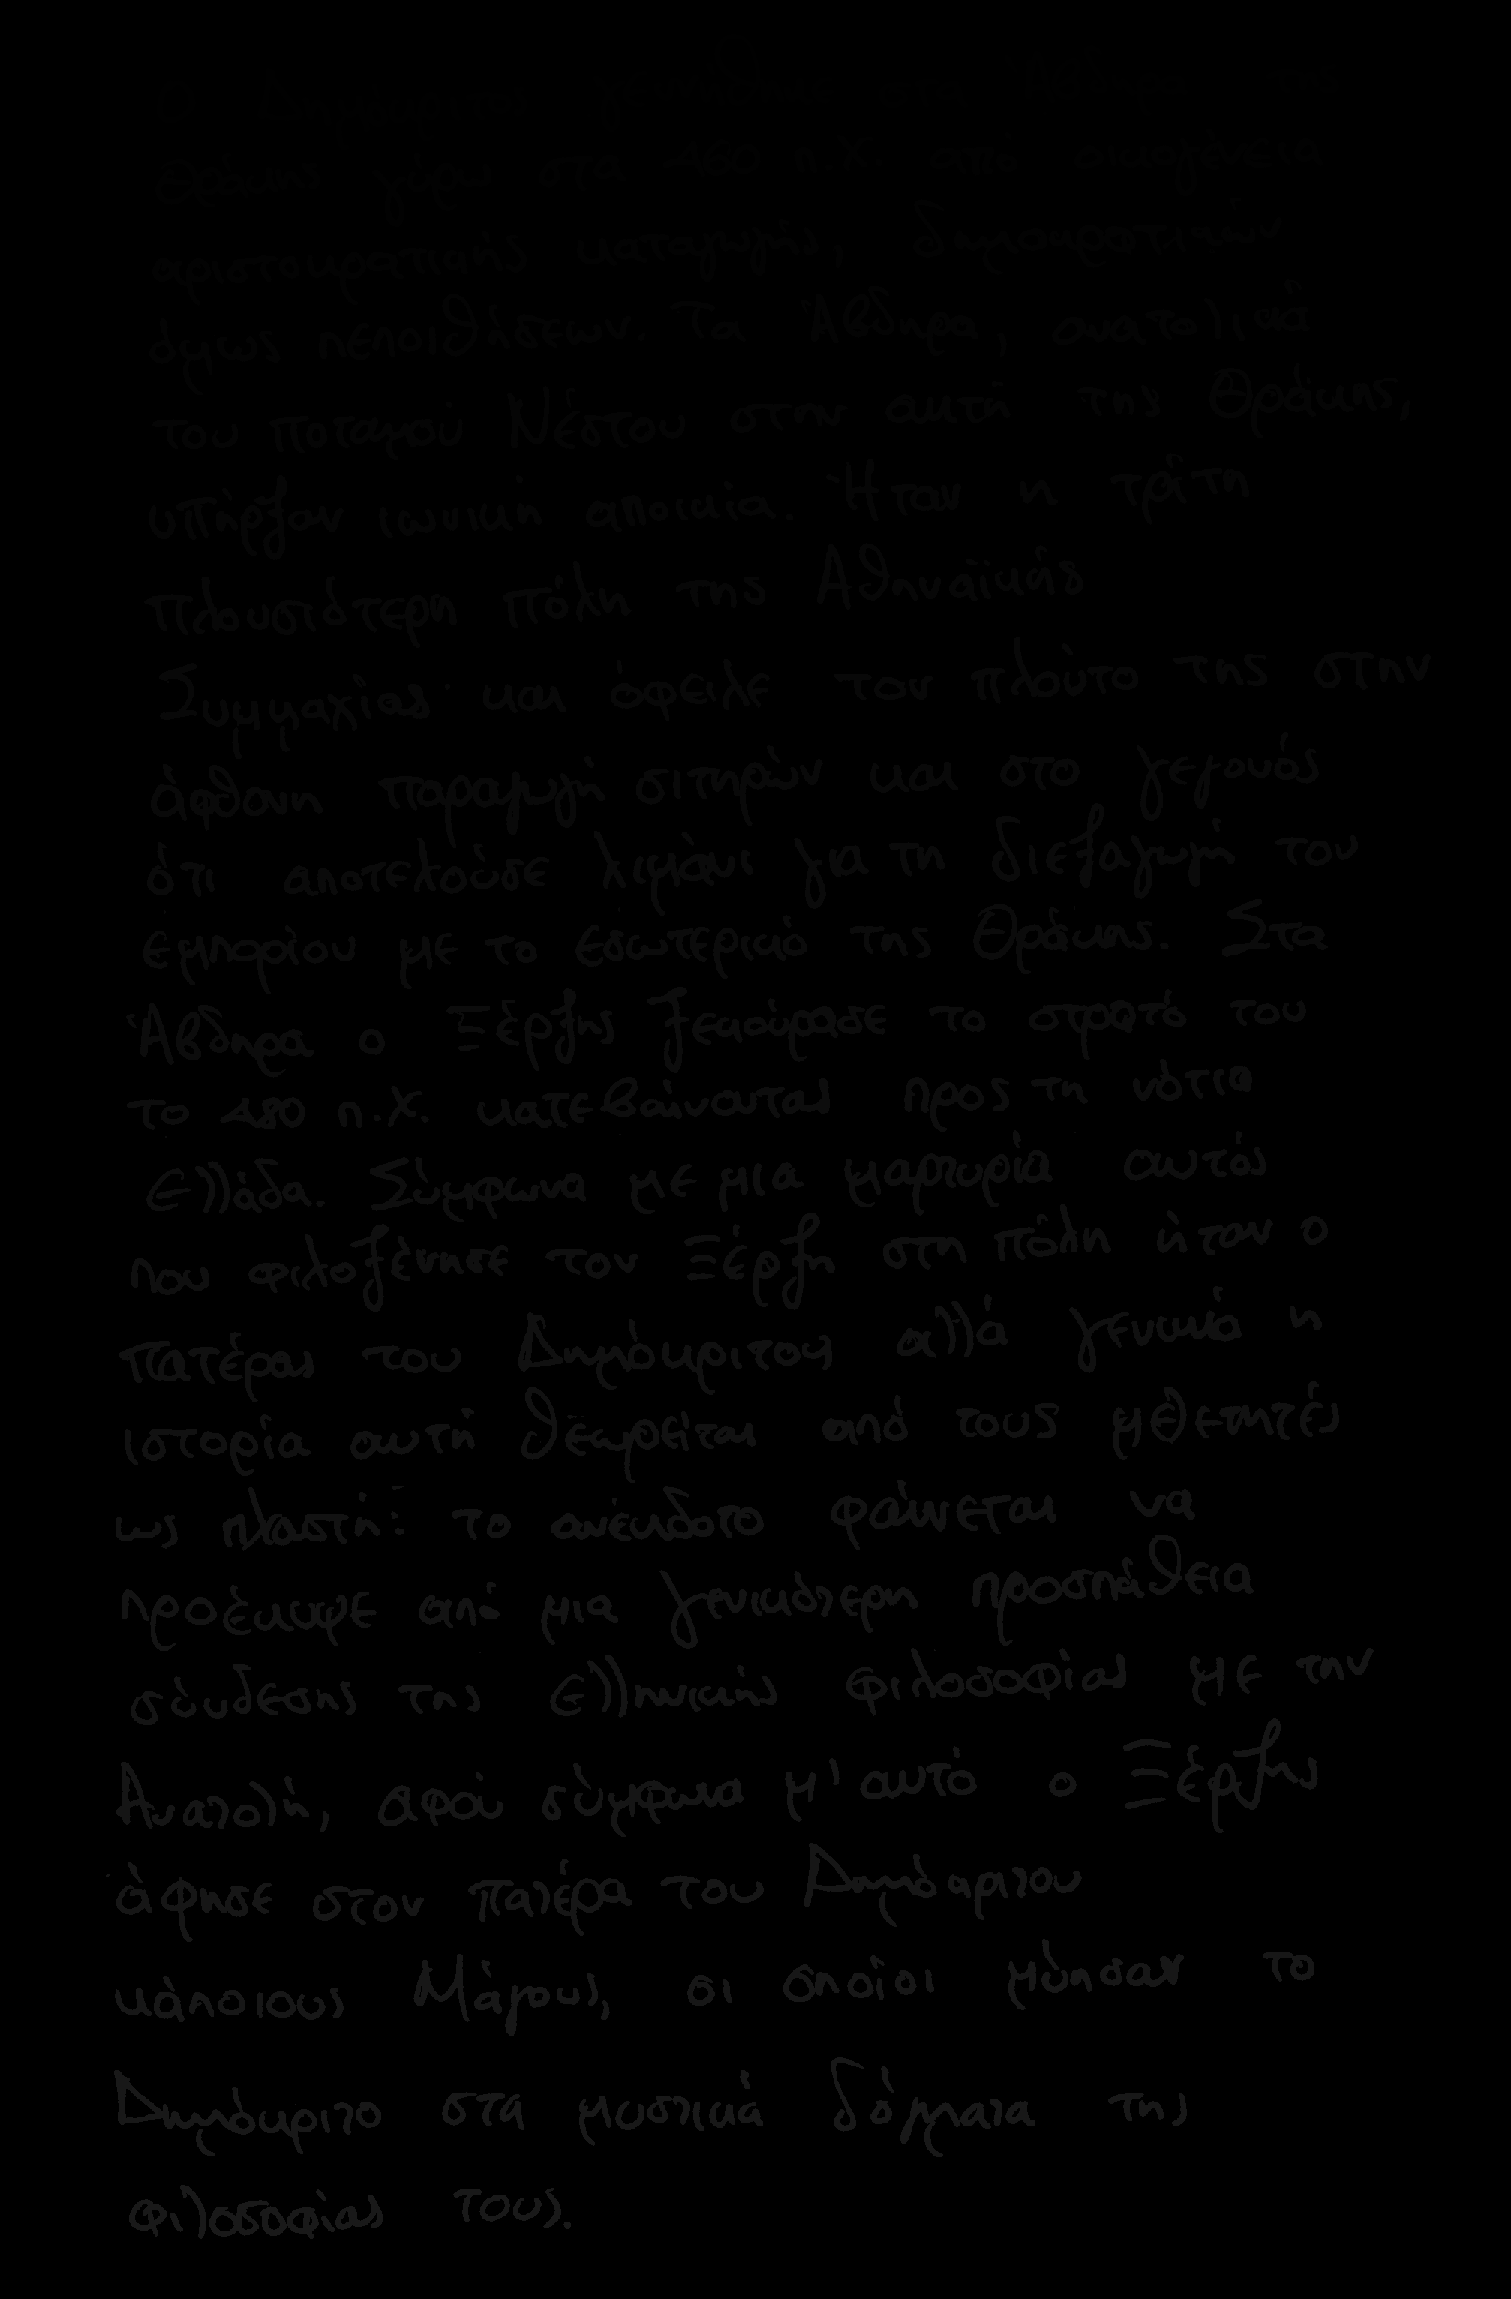 Ο Δημόκριτος γεννήθηκε στα Άβδηρα της
Θράκης γύρω στα 460 π.Χ. από οικογένεια
αριστοκρατικής καταγωγής, δημοκρατικών
όμως πεποιθήσεων. Τα Άβδηρα, ανατολικά
του ποταμού Νέστου στην ακτή της Θράκης,
υπήρξαν ιωνική αποικία. Ήταν η τρίτη
πλουσιότερη πόλη της Αθηναϊκής
Συμμαχίας και όφειλε τον πλούτο της στην
άφθονη παραγωγή σιτηρών και στο γεγονός
ότι αποτελούσε λιμάνι για τη διεξαγωγή του
εμπορίου με το εσωτερικό της Θράκης. Στα
Άβδηρα ο Ξέρξης ξεκούρασε το στρατό του
το 480 π.Χ. κατεβαίνοντας προς τη νότια
Ελλάδα. Σύμφωνα με μια μαρτυρία αυτός
που φιλοξένησε τον Ξέρξη στη πόλη ήταν ο
πατέρας του Δημόκριτου αλλά γενικά η
ιστορία αυτή θεωρείται από τους μελετητές
ως πλαστή: το ανέκδοτο φαίνεται να
προέκυψε από μια γενικότερη προσπάθεια
σύνδεσης της ελληνικής φιλοσοφίας με την
Ανατολή, αφού σύμφωνα μ' αυτό ο Ξέρξης
άφησε στον πατέρα του Δημόκριτου
κάποιους Μάγους, οι οποίοι μύησαν το
Δημόκριτο στα μυστικά δόγματα της
φιλοσοφίας τους.